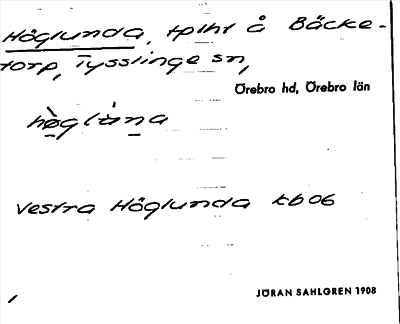 Höglunda, tplht å Bäcke-
torp, Tysslinge sn,
Örebro hd, Örebro län
Vestra Höglunda tb06
JÖRAN SAHLGREN 1908